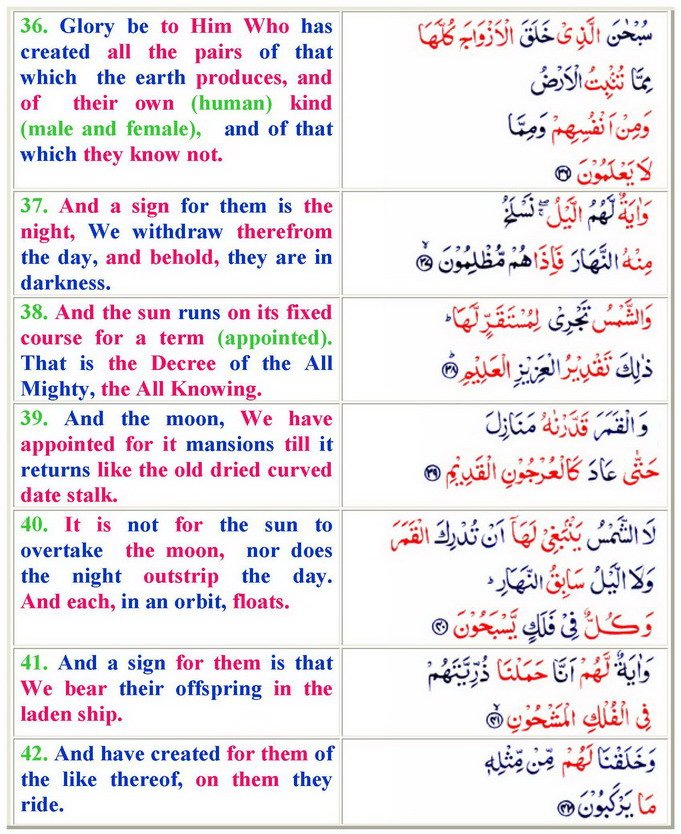 36. Glory be to Him Who has
created all the pairs of that
which the earth produces, and
of their own (human) kind
(male and female), and of that
which they know not.
سُبْحٰنَ الَّذِىْ خَلَقَ الْاَزْوَاجَ كُلَّهَا
مِمَّا تُنْۢبِتُ الْاَرْضُ
وَمِنْ اَنْفُسِهِمْ وَمِمَّا
لَا يَعْلَمُوْنَ ﴿۳۶﴾
37. And a sign for them is the
night, We withdraw therefrom
the day, and behold, they are in
darkness.
وَاٰيَةٌ لَّهُمُ الَّيْلُ ۖۚ نَسْلَخُ
مِنْهُ النَّهَارَ فَاِذَا هُمْ مُّظْلِمُوْنَ ۙ﴿۳۷﴾
38. And the sun runs on its fixed
course for a term (appointed).
That is the Decree of the All
Mighty, the All Knowing.
وَالشَّمْسُ تَجْرِىْ لِمُسْتَقَرٍّ لَّهَا ؕ
ذٰلِكَ تَقْدِيْرُ الْعَزِيْزِ الْعَلِيْمِ ؕ﴿۳۸﴾
39. And the moon, We have
appointed for it mansions till it
returns like the old dried curved
date stalk.
وَالْقَمَرَ قَدَّرْنٰهُ مَنَازِلَ
حَتّٰى عَادَ كَالْعُرْجُوْنِ الْقَدِيْمِ ﴿۳۹﴾
40. It is not for the sun to
overtake the moon, nor does
the night outstrip the day.
And each, in an orbit, floats.
لَا الشَّمْسُ يَنْۢبَغِىْ لَهَاۤ اَنْ تُدْرِكَ الْقَمَرَ
وَلَا الَّيْلُ سَابِقُ النَّهَارِ ؕ
وَكُلٌّ فِىْ فَلَكٍ يَّسْبَحُوْنَ ﴿۴۰﴾
41. And a sign for them is that
We bear their offspring in the
laden ship.
وَاٰيَةٌ لَّهُمْ اَنَّا حَمَلْنَا ذُرِّيَّتَهُمْ
فِى الْفُلْكِ الْمَشْحُوْنِ ۙ﴿۴۱﴾
42. And have created for them of
the like thereof, on them they
ride.
وَخَلَقْنَا لَهُمْ مِّنْ مِّثْلِهٖ
مَا يَرْكَبُوْنَ ﴿۴۲﴾